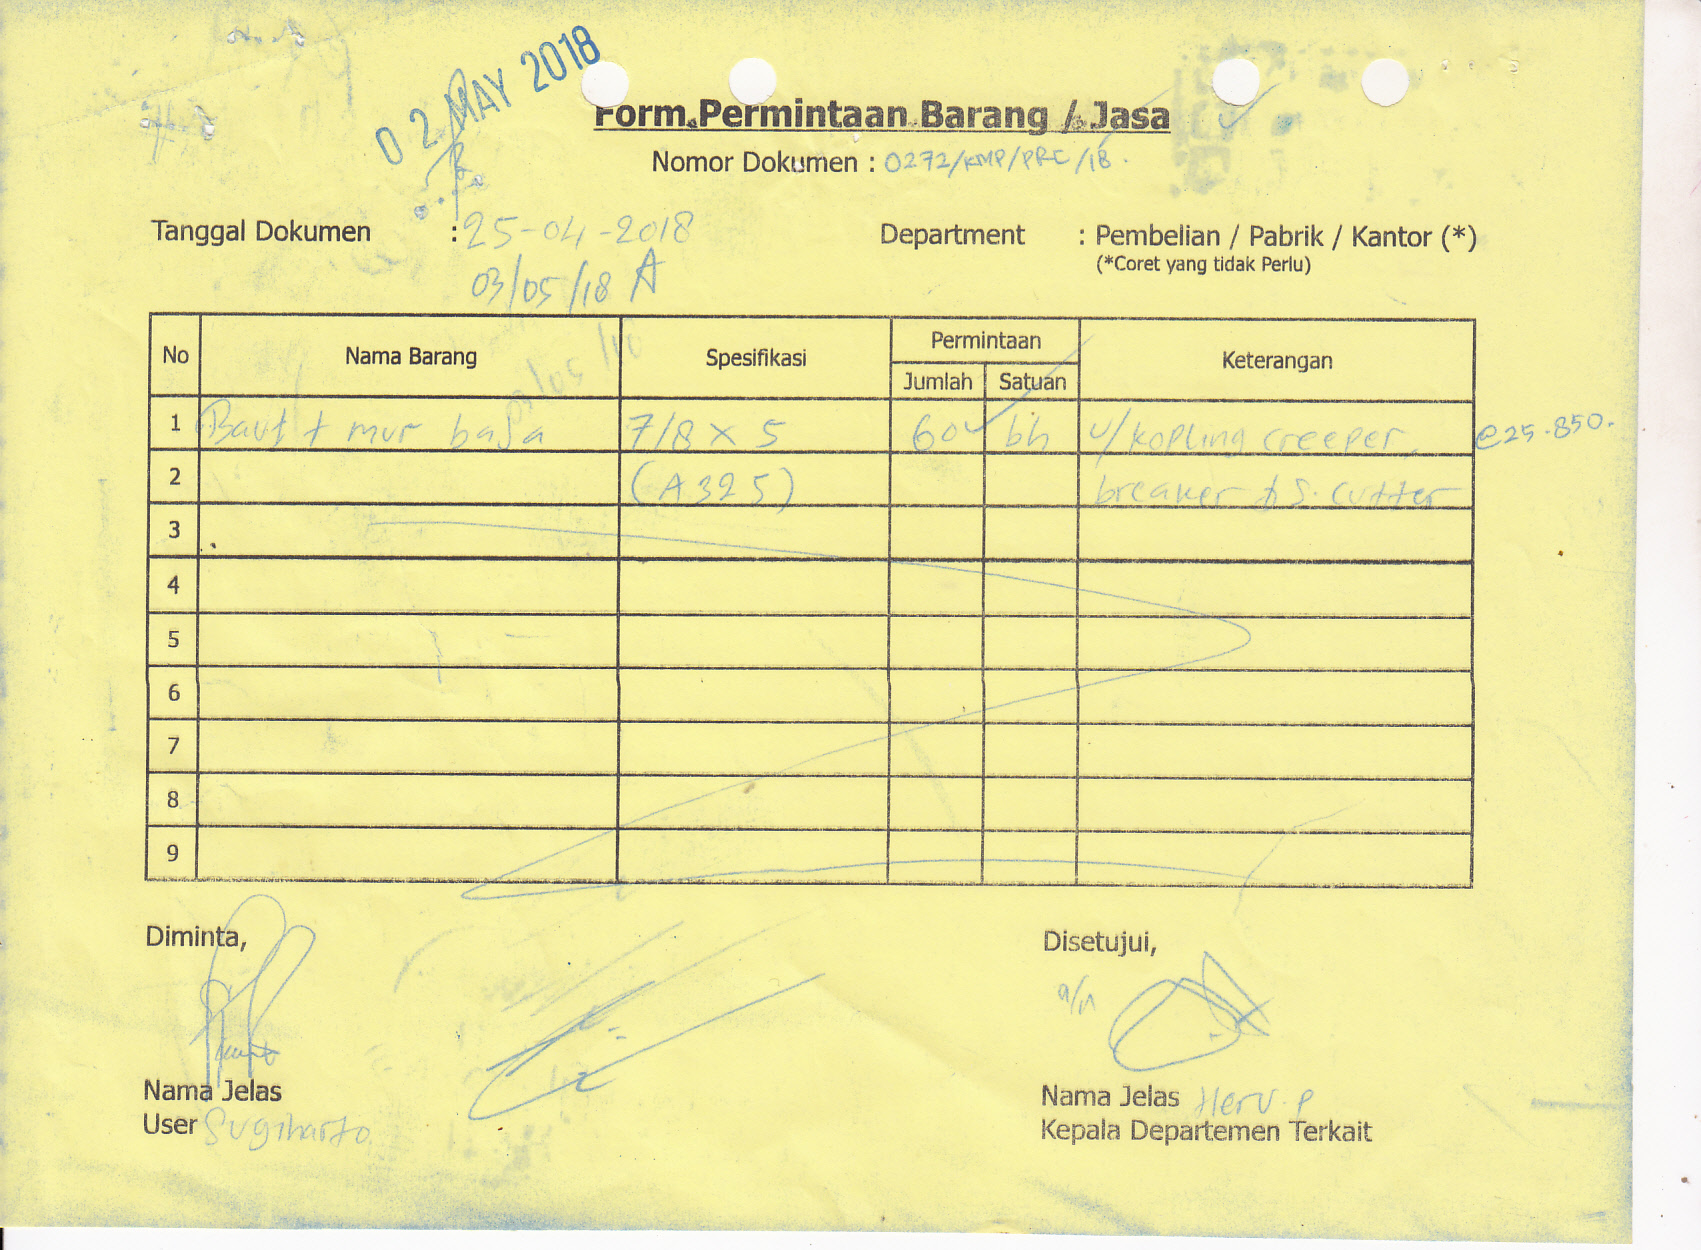 02 MAY 2018
Form Permintaan Barang / Jasa
Nomor Dokumen : 0272/KMP/PRC/18.
Tanggal Dokumen : 25-04-2018
Department : Pembelian / Pabrik / Kantor (*)
(*Coret yang tidak Perlu)
03/05/18 A
No Nama Barang Spesifikasi Permintaan Keterangan
Jumlah Satuan
1 Baut + mur baja 7/8 x 5 60 bh u/ kopling creeper, @25.850.
2 (A325) breaker + S. cutter
3
4
5
6
7
8
9
Diminta,
Disetujui,
a/n
Nama Jelas
User Sugiharto
Nama Jelas Heru. P
Kepala Departemen Terkait